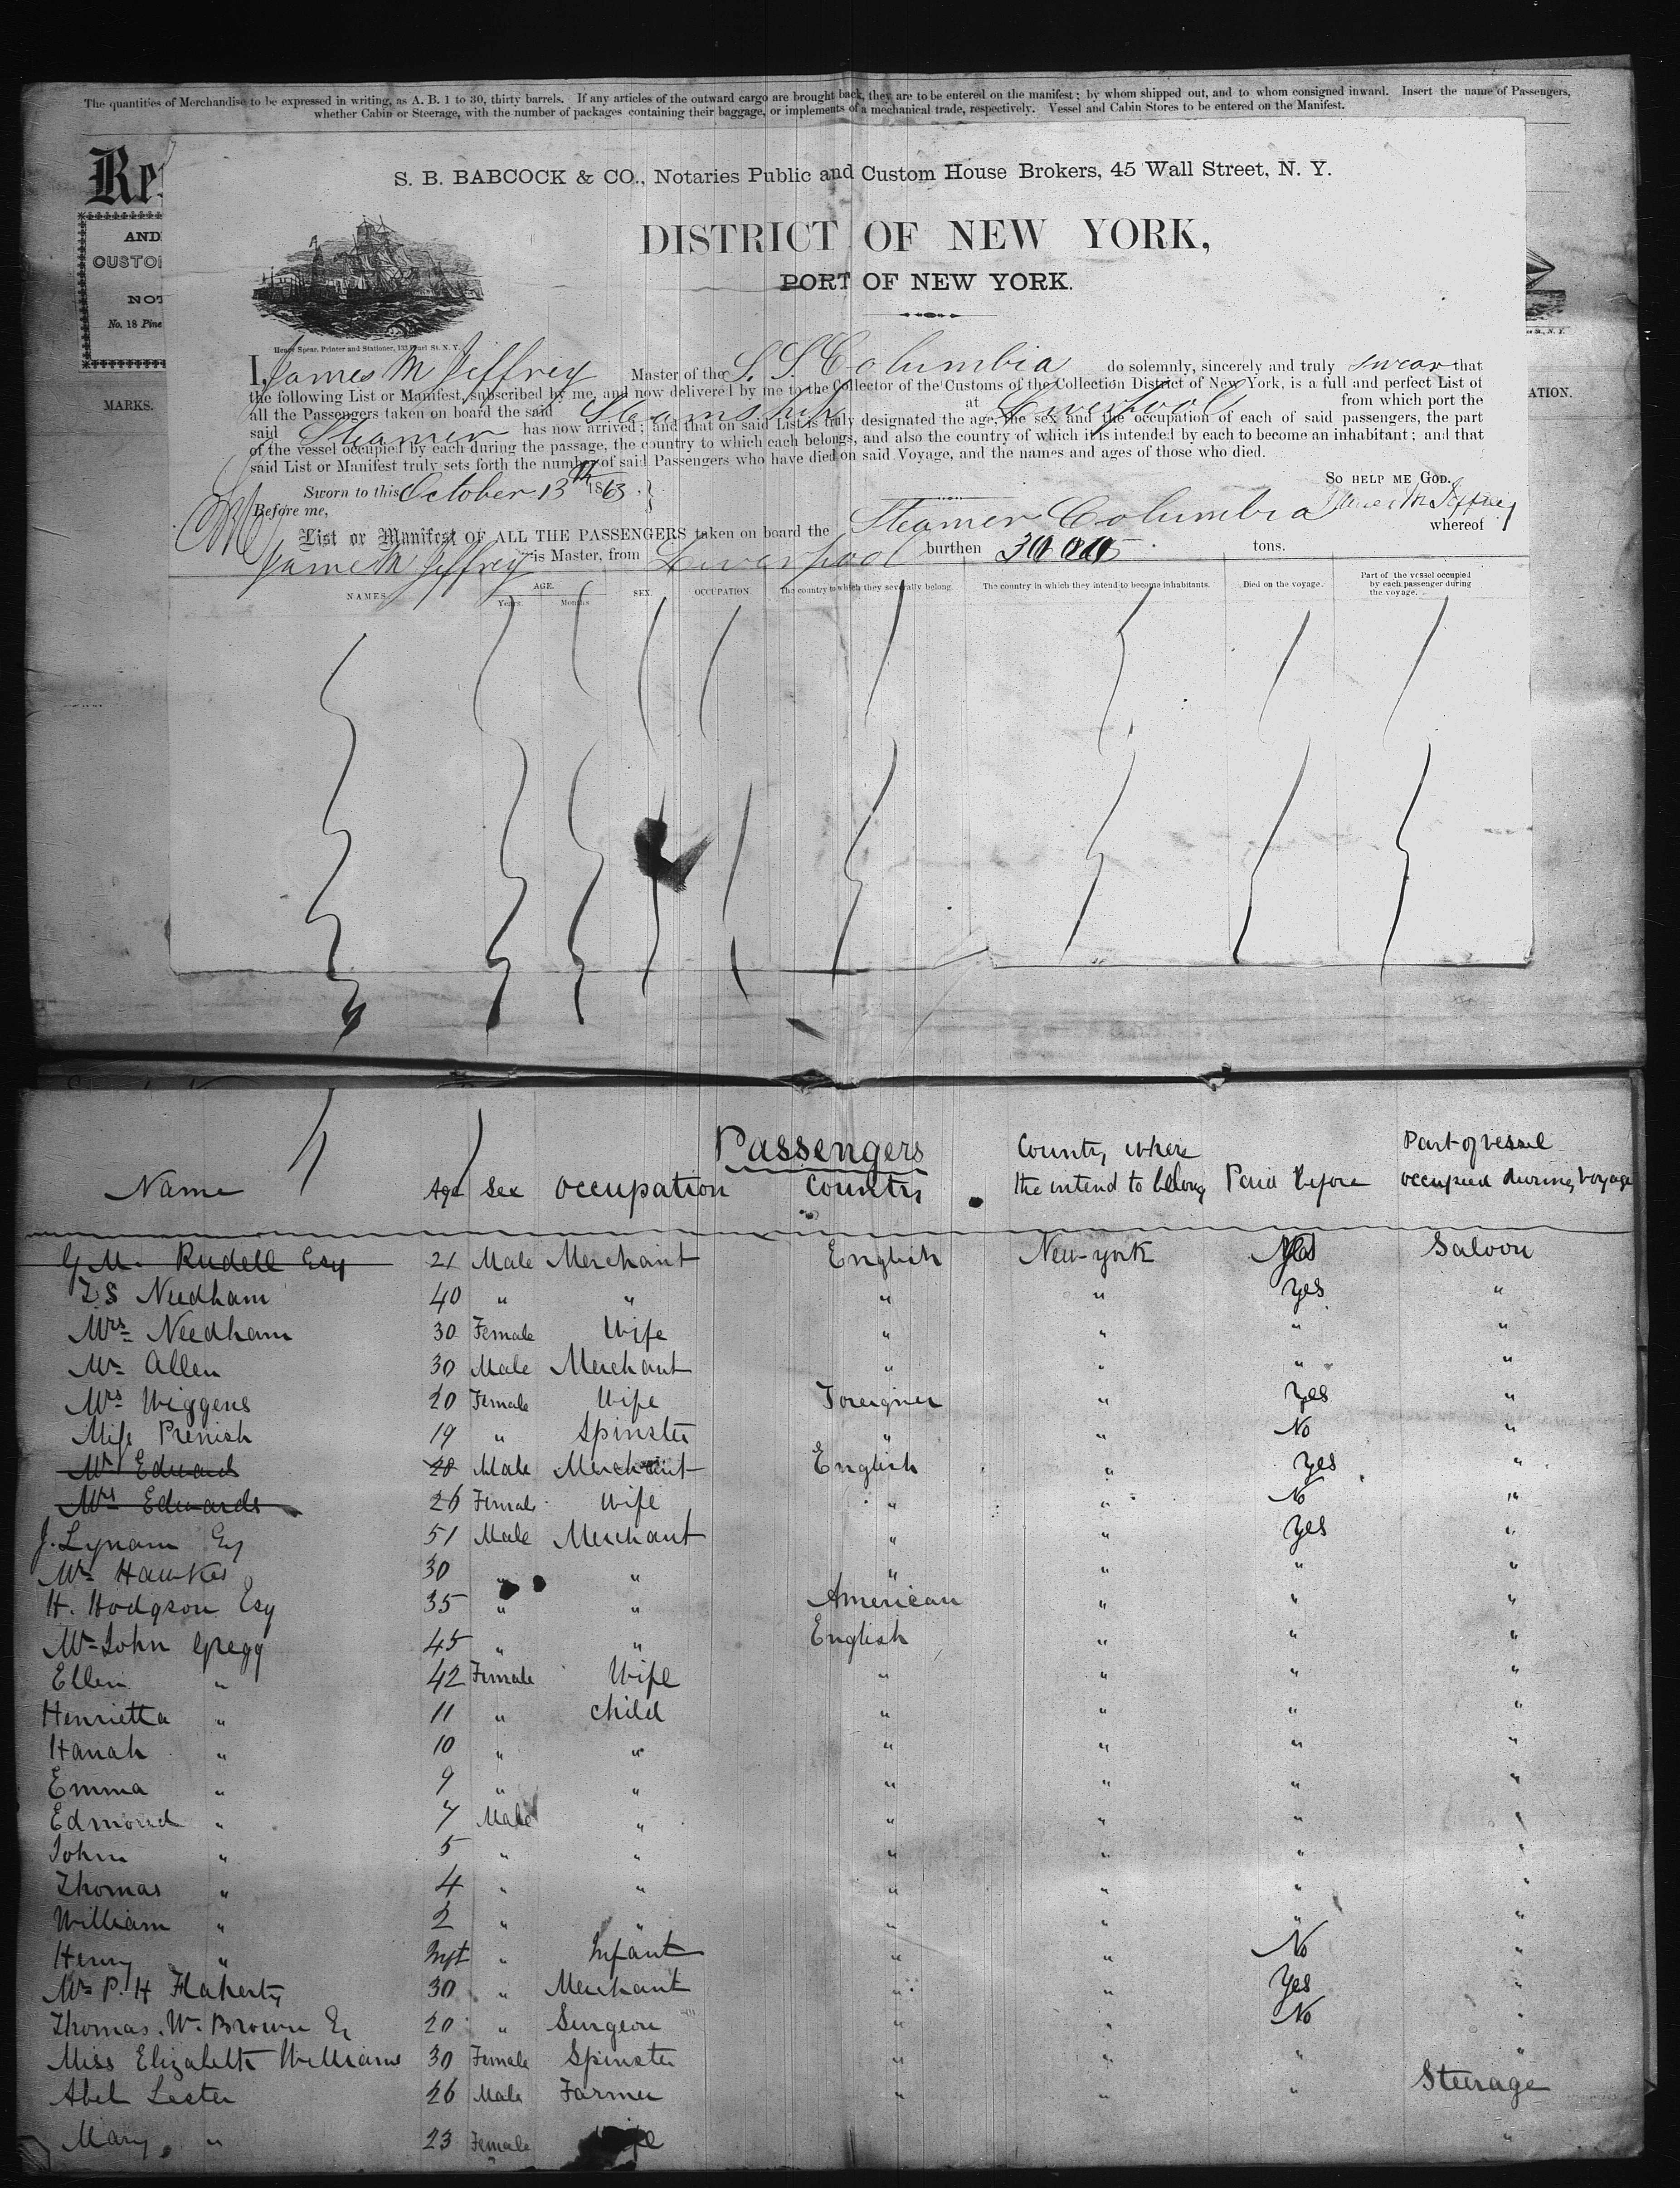 The quantities of Merchandise to be expressed in writing, as A. B. 1 to 30, thirty barrels. If any articles of the outward cargo are brought back, they are to be entered on the manifest; by whom shipped out, and to whom consigned inward. Insert the name of Passengers,
whether Cabin or Steerage, with the number of packages containing their baggage, or implements of a mechanical trade, respectively. Vessel and Cabin Stores to be entered on the Manifest.
S. B. BABCOCK & CO., Notaries Public and Custom House Brokers, 45 Wall Street, N. Y.
AND
No. 18 Pine
MARKS.
DISTRICT OF NEW YORK,
PORT OF NEW YORK.
Henry Spear, Printer and Stationer, 133 Pearl St. N. Y.
I, James M Jeffrey Master of the S. S. Columbia do solemnly, sincerely and truly swear that
the following List or Manifest, subscribed by me, and now delivered by me to the Collector of the Customs of the Collection District of New York, is a full and perfect List of
all the Passengers taken on board the said Steamship at Liverpool from which port the
said Steamer has now arrived; and that on said List is truly designated the age, the sex and the occupation of each of said passengers, the part
of the vessel occupied by each during the passage, the country to which each belongs, and also the country of which it is intended by each to become an inhabitant; and that
said List or Manifest truly sets forth the number of said Passengers who have died on said Voyage, and the names and ages of those who died.
SO HELP ME GOD.
Sworn to this October 13th 1863.
James M Jeffrey
Before me,
List or Manifest OF ALL THE PASSENGERS taken on board the Steamer Columbia whereof
James M Jeffrey is Master, from Liverpool burthen tons.
NAMES. AGE. Years. Months SEX. OCCUPATION. The country to which they severally belong. The country in which they intend to become inhabitants. Died on the voyage. Part of the vessel occupied by each passenger during the voyage.
Passengers
Name Age Sex Occupation Country Country where the intend to belong Paid before Part of vessel occupied during voyage
G M. Rudell Esq 21 Male Merchant English New-york Saloon
T. S Needham 40 " " " " Yes "
Mrs Needham 30 Female Wife " " " "
Mr Allen 30 Male Merchant " " " "
Mrs Wiggens 20 Female Wife Foreigner " Yes "
Miss Prenish 19 " Spinster " " No "
Mr Edward 28 Male Merchant English " Yes "
Mrs Edwards 26 Female Wife " " No "
J. Lynam Esq 51 Male Merchant " " Yes "
Mr Hawkes 30 " " " " " "
H. Hodgson Esq 35 " " American " " "
Mr John Gregg 45 " " English " " "
Ellen " 42 Female Wife " " " "
Henrietta " 11 " Child " " " "
Hanah " 10 " " " " " "
Emma " 9 " " " " " "
Edmond " 7 Male " " " " "
John " 5 " " " " " "
Thomas " 4 " " " " " "
William " 2 " " " " " "
Henry " Inft " Infant " " No "
Mr P. H Flaherty 30 " Merchant " " Yes "
Thomas. W. Brown 20 " Surgeon " " No "
Miss Elizabeth Williams 30 Female Spinster " " " "
Abel Lester 26 Male Farmer " " " Steerage
Mary " 23 Female Wife "